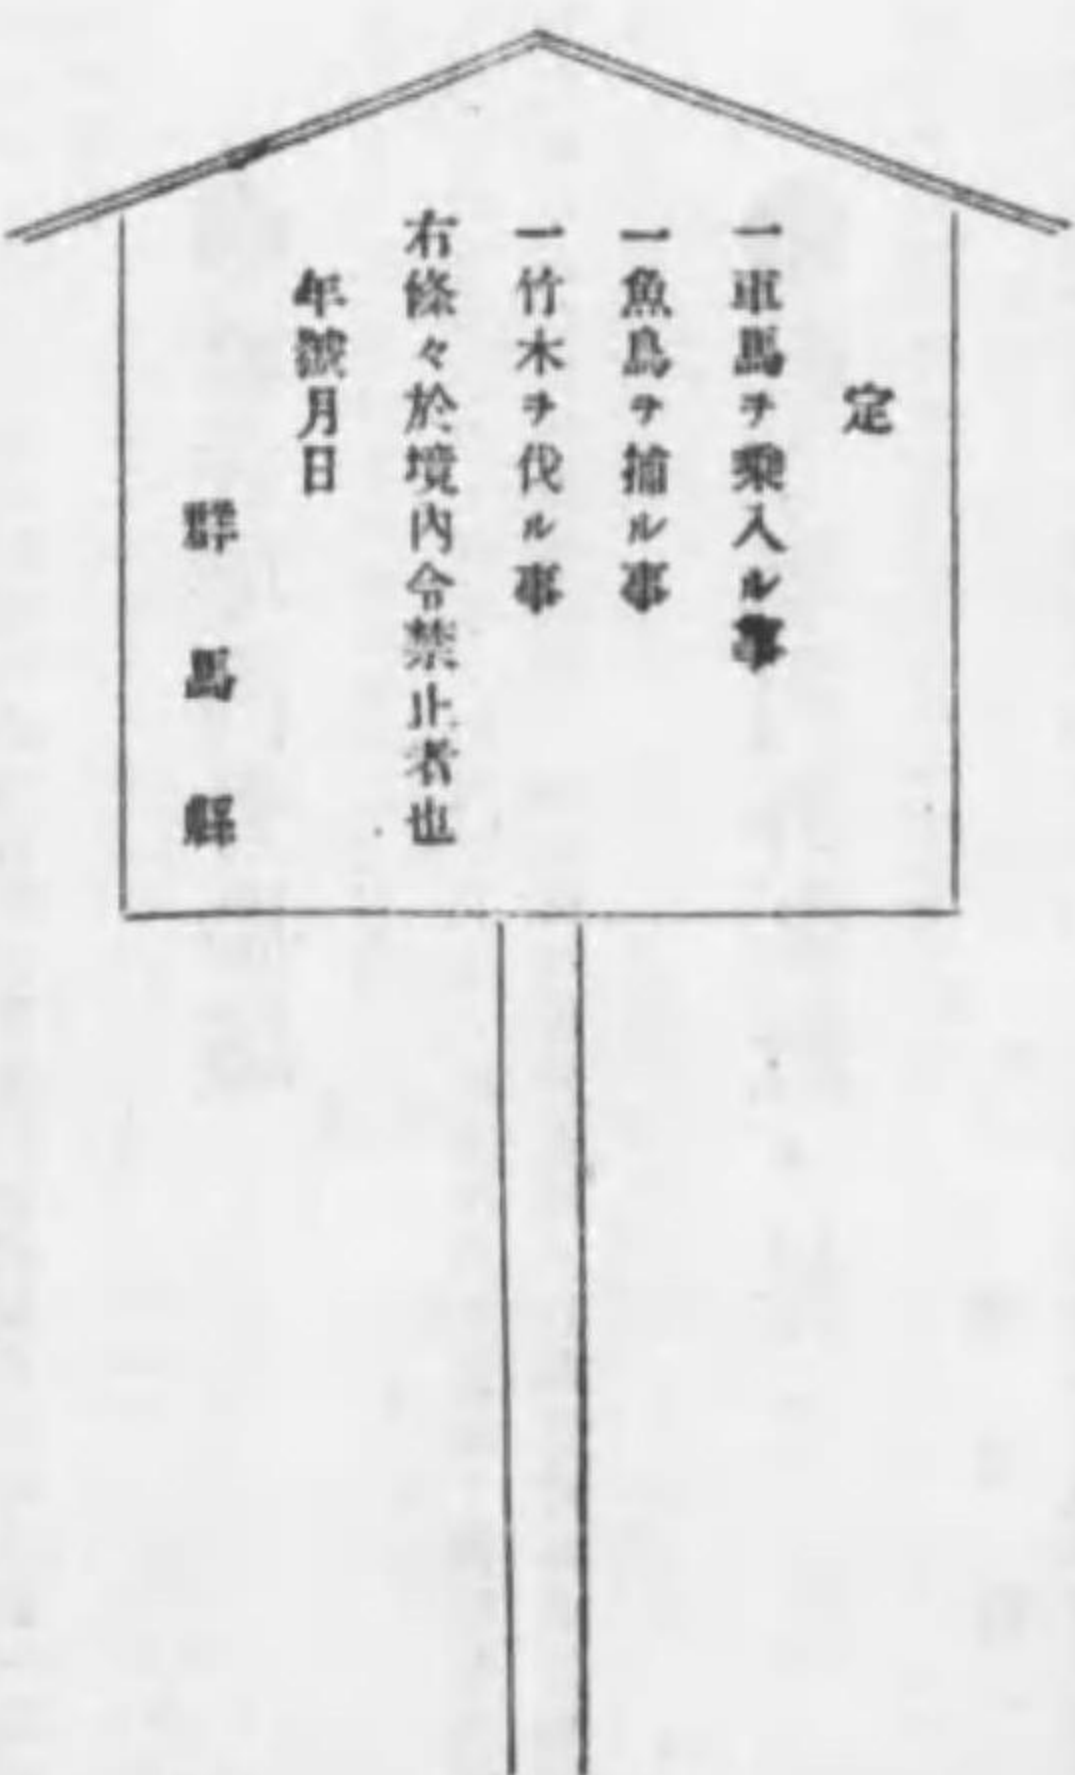 定
一車馬ヲ乗入ル事
一魚鳥ヲ捕ル事
一竹木ヲ伐ル事
右條々於境內令禁止者也
年號月日
群馬縣